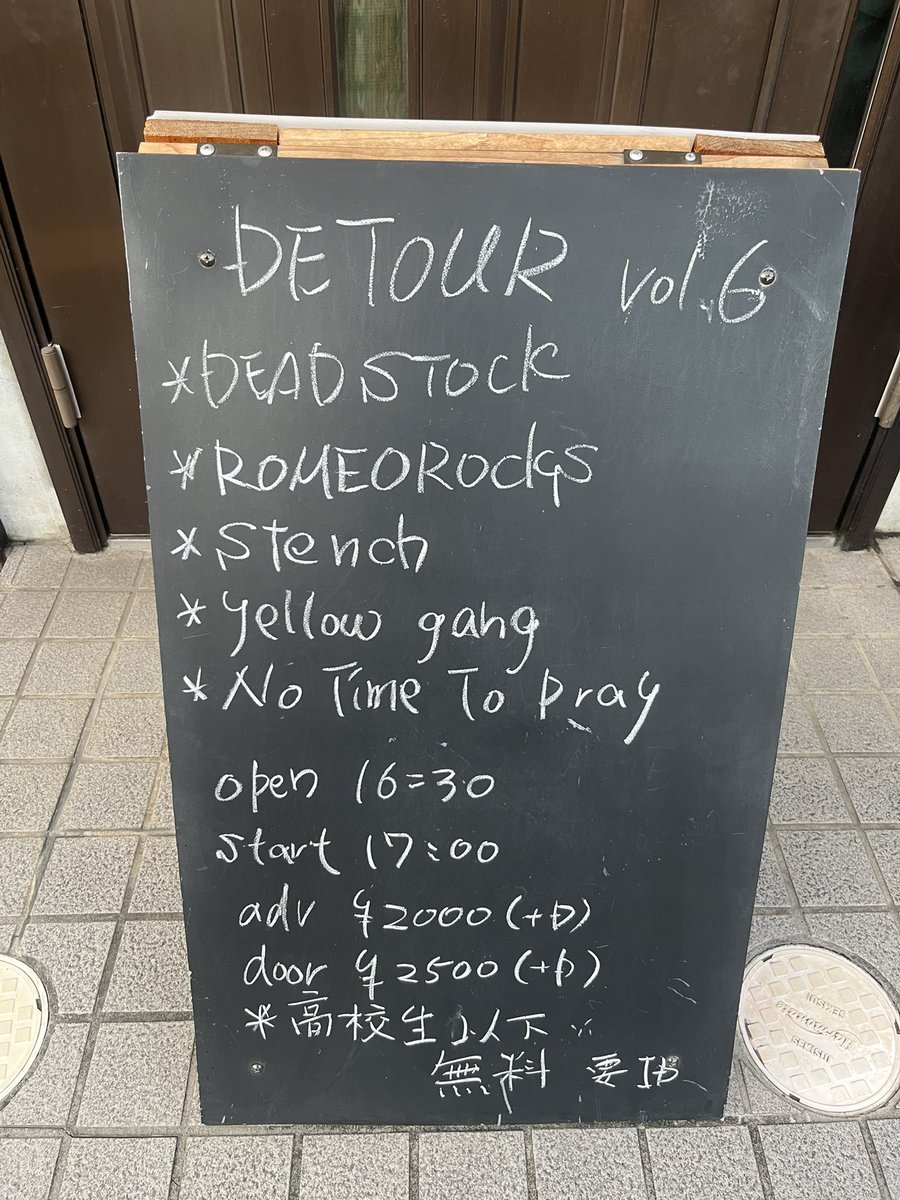 DETOUR vol.6
*DEADSTOCK
*ROMEOROCKS
*Stench
*yellow gang
*No Time To pray
open 16:30
start 17:00
adv ¥2000(+D)
door ¥2500(+D)
*高校生以下
無料 要ID